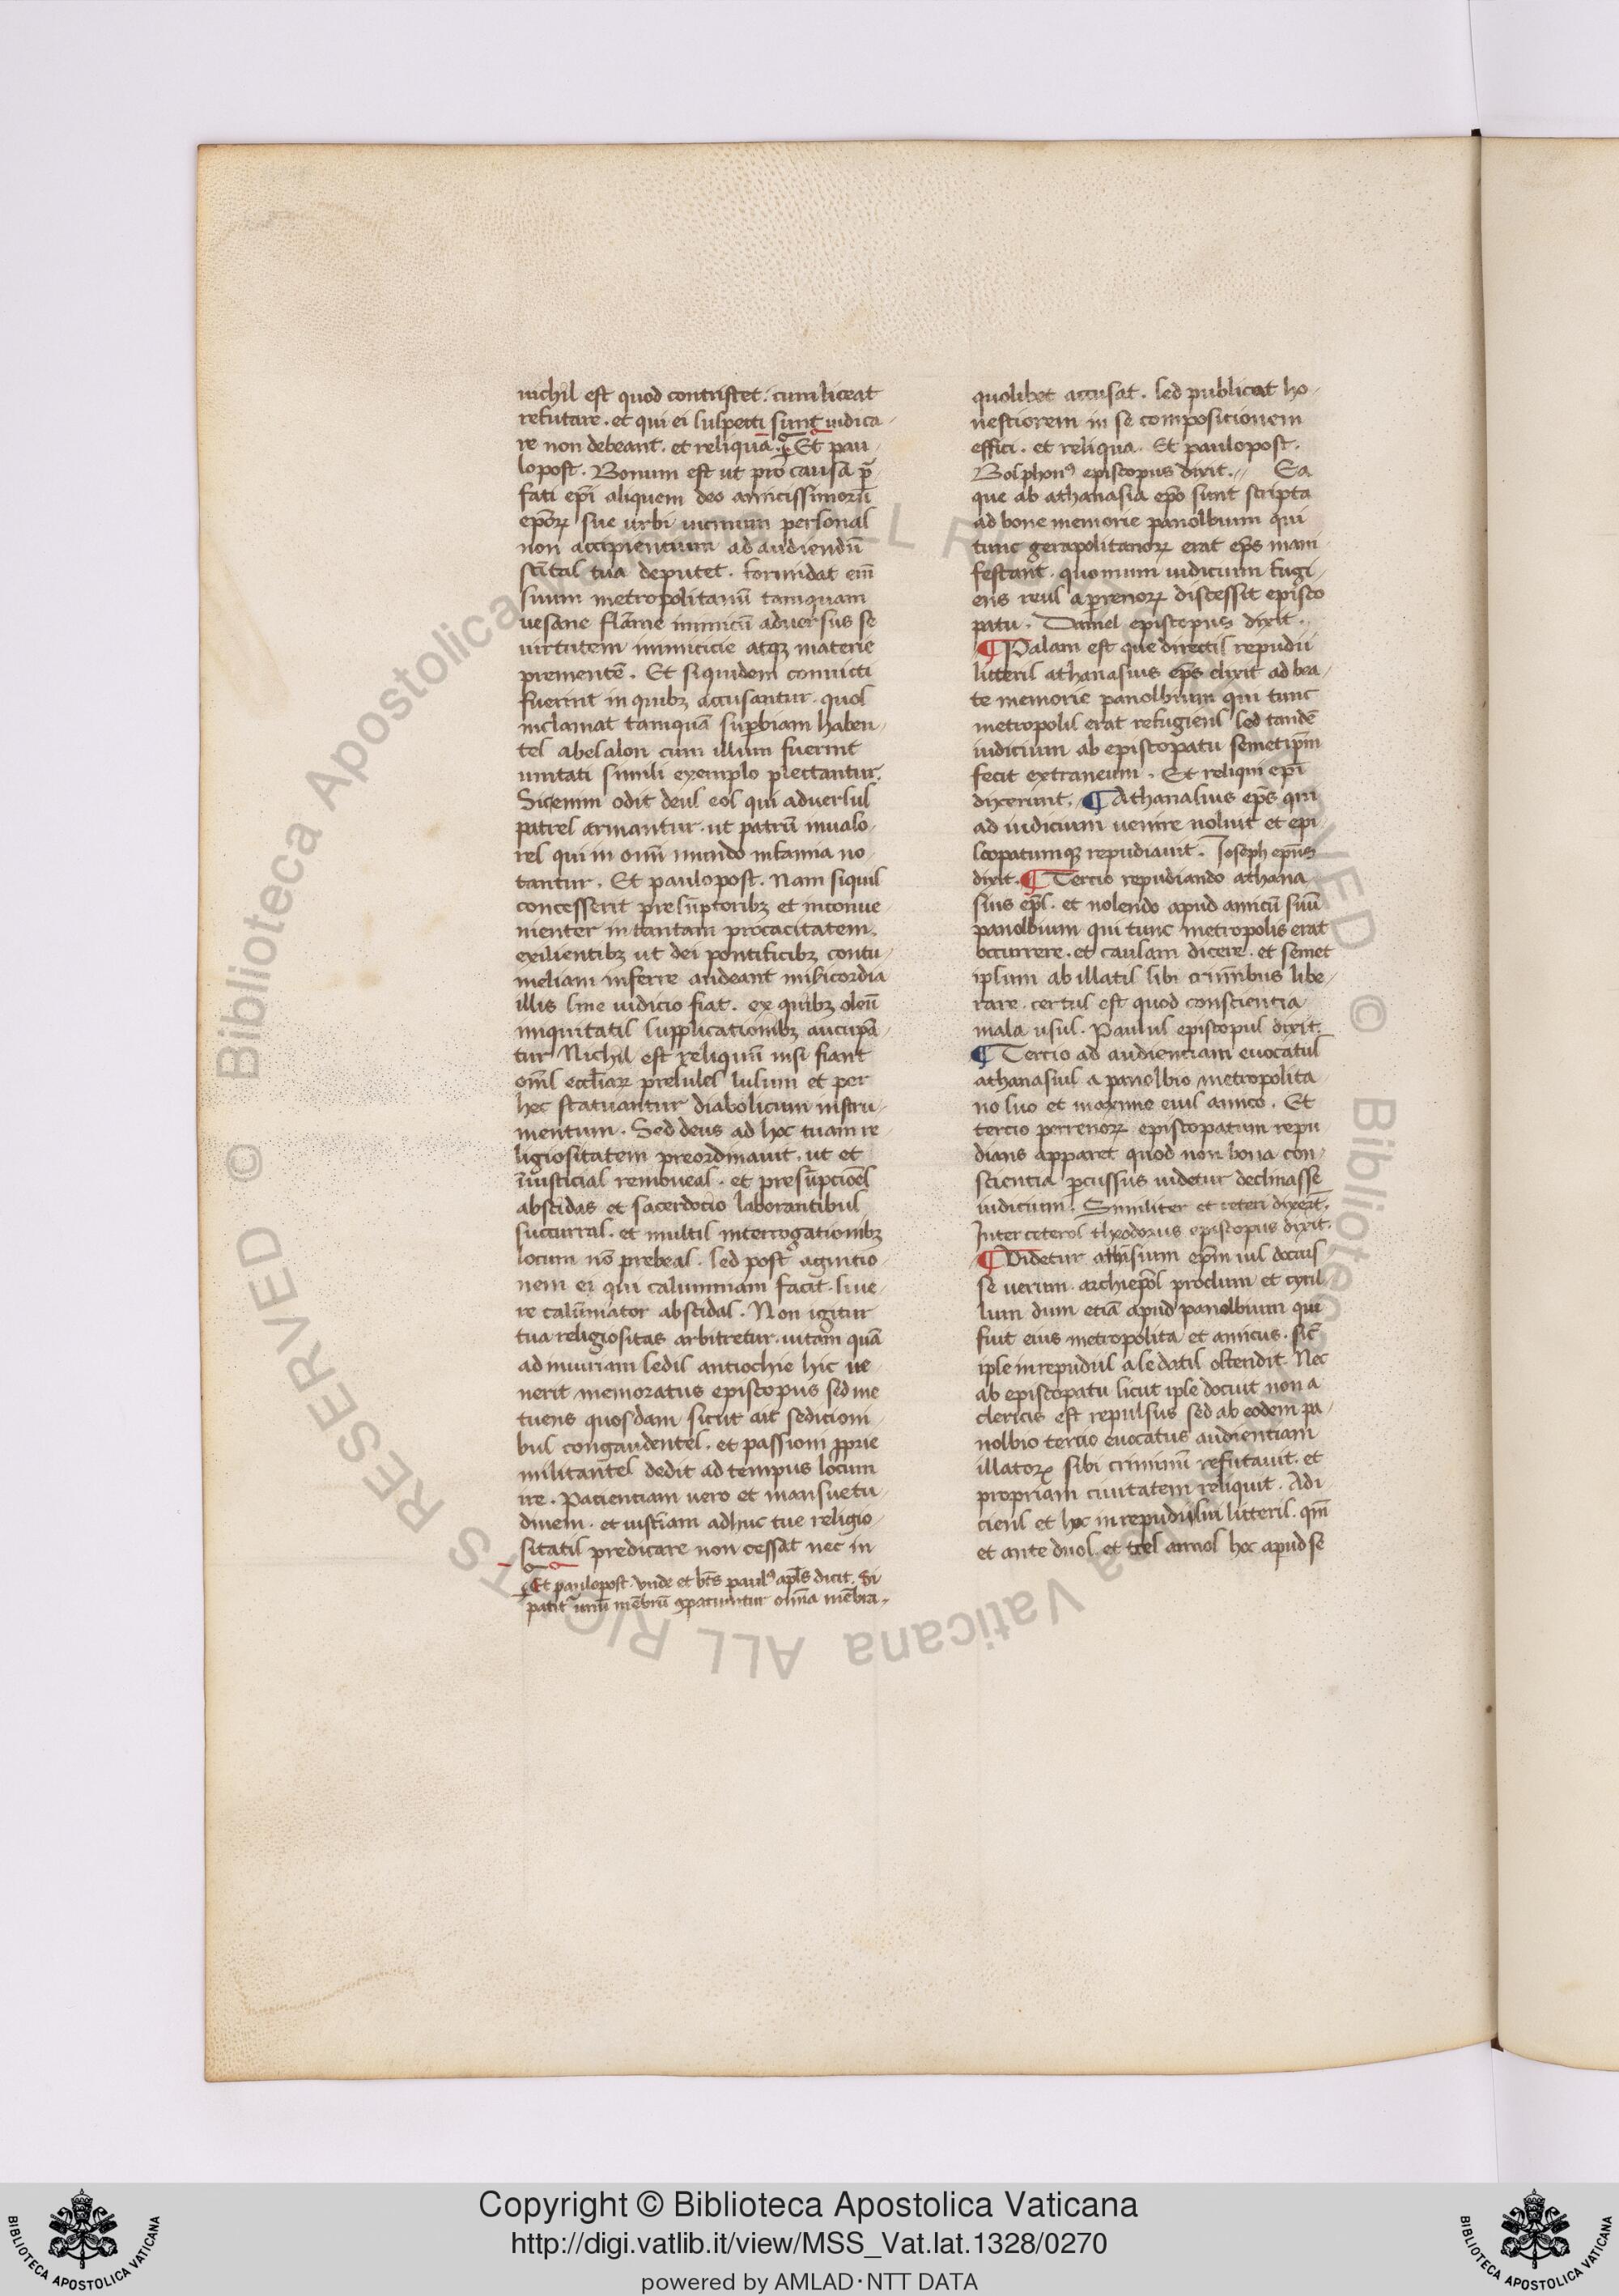 nichil est quod contristet. cum liceat
refutare. et qui ei suspecti sunt iudica-
re non debeant. et reliqua. Et pau-
lopost. Bonum est ut pro causa p̄-
fati ep̄i aliquem deo amicissimorū
ep̄oꝝ sue urbi uicinum personas
non accipientium ad audiendū
sc̄itas tua deputet. formidat em̄
suum metropolitanū tamquam
uesane flāme inimicū aduersus se
uirtutem inimicicie atqꝫ materie
prementē. Et siquidem conuicti
fuerint in quibꝫ accusantur. quos
inclamat tamquā suꝑbiam haben-
tes abesalon cum illum fuerint
imitati simili exemplo plectantur.
Sic enim odit deus eos qui aduersus
patres armantur. ut patrū inualo-
res qui in omī mundo infamia no-
tantur. Et paulopost. Nam siquis
concesserit presūptoribꝫ et inconue-
nienter in tantam procacitatem
exilientibꝫ ut dei pontificibꝫ contu-
meliam inferre audeant mīsicordia
illis sine iudicio fiat. ex quibꝫ oleū
iniquitatis supplicationibꝫ aucupā-
tur Nichil est reliquū nisi fiant
om̄s eccl̄iaꝝ presules lusum et per
hec statuantur diabolicum instru-
mentum. Sed deus ad hoc tuam re-
ligiositatem preordinauit. ut et
iniusticias remoueas. et presūpciōes
abscidas et sacerdocio laborantibus
succurras. et multis interrogationibꝫ
locum nō prebeas. sed post agnitio-
nem ei qui calumniam facit. liue-
re calūniator abscidas. Non igitur
tua religiositas arbitretur. uitam quā
ad iniuriam sedis antiochie hic ue-
nerit memoratus episcopus sed me-
tuens quosdam sicut ait sedicioni-
bus congaudentes. et passioni ꝓprie
militantes dedit ad tempus locum
ire. Pacienciam uero et mansuetu-
dinem. et iustic̄iam adhuc tue religio-
sitatis predicare non cessat nec in
Et paulopost. Vnde et bt̄s paulꝰ apl̄s dicit. Si
patit᷑ unū mēbrū ꝯpatiuntur om̄ia mēbra.
quolibet accusat. sed publicat ho-
nestiorem in se compositionem
effici. et reliqua. Et paulopost.
Bolphonꝰ episcopus dixit. Ea
que ab athanasia ep̄o sunt scripta
ad bone memorie panolbium qui
tunc gerapolitanoꝝ erat ep̄s mani-
festant. quoniam iudicium fugi-
ens reus a prenoꝝ discessit episco-
patu. Daniel episcopus dixit.
¶ Palam est que directis repudii
litteris athanasius ep̄s dixit ad bea-
te memorie panolbium qui tunc
metropolis erat refugiens sed tandē
iudicium ab episcopatu semetip̄m
fecit extraneum. Et reliqui ep̄i
dixerunt. ¶ Athanasius ep̄s qui
ad iudicium uenire noluit et epi-
scopatumqꝫ repudiauit. Ioseph ep̄us
dixit. ¶ Tercio repudiando athana-
sius ep̄s. et nolendo apud amicū suū
panolbium qui tunc metropolis erat
occurrere. et causam dicere. et semet
ipsum ab illatis sibi crim̄ibus libe-
rare. certus est quod conscientia
mala usus. Paulus episcopus dixit.
¶ Tercio ad audienciam euocatus
athanasius a panolbio metropolita-
no suo et maxime eius amico. Et
tercio perrenoꝝ episcopatum repu-
dians apparet quod non bona con-
scientia ꝑcussus uidetur declinasse
iudicium. Similiter et ceteri dixert̄.
Inter ceteros theodorus episcopus dixit.
¶ Videtur athīsium ep̄m ius docuis-
se uerum. archiep̄os proclum et cyril-
lum dum etiā apud panolbium qui
fuit eius metropolita et amicus. sic̄
ipse in repudiis a se datis ostendit. Nec
ab episcopatu sicut ipse docuit non a
clericis est repulsus sed ab eodem pa-
nolbio tercio euocatus audientiam
illatoꝝ sibi criminū refutauit. et
propriam ciuitatem reliquit. Adi-
ciens et hoc in repudii sui litteris. qm̄
et ante duos. et tres annos hoc apud se
Copyright © Biblioteca Apostolica Vaticana
http://digi.vatlib.it/view/MSS_Vat.lat.1328/0270
powered by AMLAD·NTT DATA
BIBLIOTECA APOSTOLICA VATICANA
BIBLIOTECA APOSTOLICA VATICANA
© Biblioteca Apostolica Vaticana ALL RIGHTS RESERVED